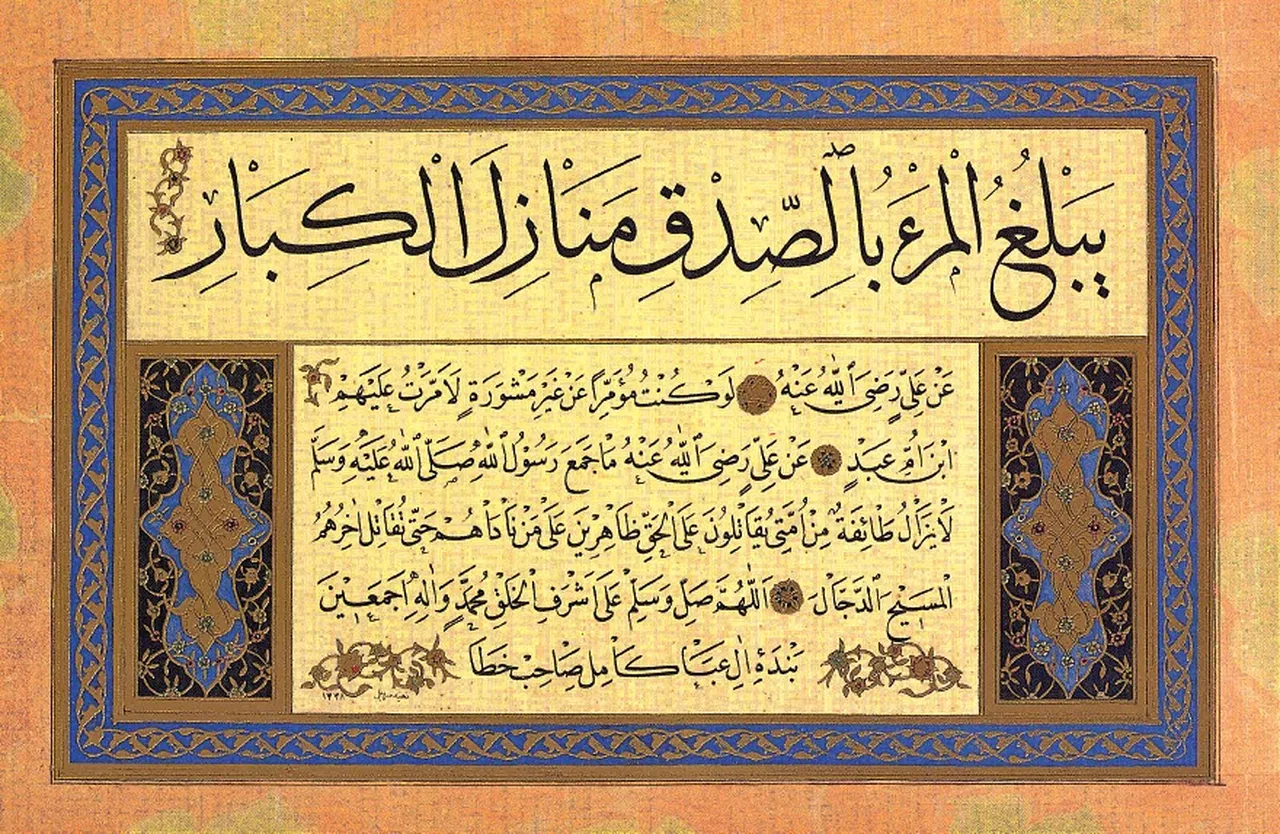 يَبْلُغُ الْمَرْءُ بِالصِّدْقِ مَنَازِلَ الْكِبَارِ
عَنْ عَلِيٍّ رَضِىَ ٱللّٰهُ عَنْهُ لَوْ كُنْتُ مُؤَمِّرًا عَنْ غَيْرِ مَشْوَرَةٍ لَاَمَّرْتُ عَلَيْهِمْ
ابْنَ اُمِّ عَبْدٍ عَنْ عَلِيٍّ رَضِىَ ٱللّٰهُ عَنْهُ مَا جَمَعَ رَسُولُ ٱللّٰهِ صَلَّى ٱللّٰهُ عَلَيْهِ وَسَلَّمَ
لَا يَزَالُ طَائِفَةٌ مِنْ اُمَّتِى يُقَاتِلُونَ عَلَى الْحَقِّ ظَاهِرِينَ عَلَى مَنْ نَاوَاهُمْ حَتّٰى تُقَاتِلَ اٰخِرُهُمُ
الْمَسِيحَ ٱلدَّجَّالَ اَللّٰهُمَّ صَلِّ وَسَلِّمْ عَلَى اَشْرَفِ الْخَلْقِ مُحَمَّدٍ وَاٰلِهِ اَجْمَعِينَ
بَنْدَۀِ اٰلِ عَبَا كَامِل صَاحِبْ خَطَا
١٣٣٨